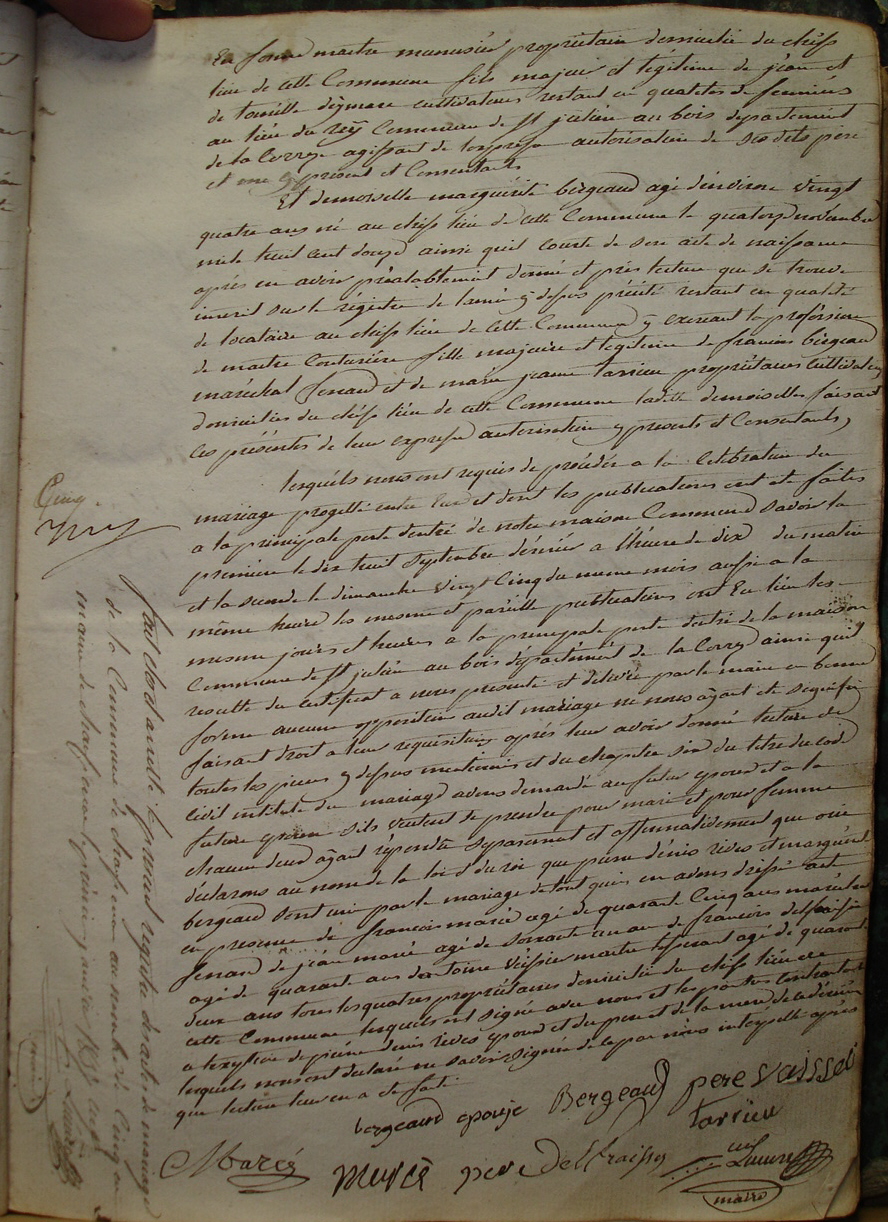 en forme maitre menusier propriétaire domicilié du cheff
lieu de cette Commune fils majeur et légitime de jean et
de cultivateurs restant en qualités de fermiers
au lieu du Commune de St julien au bois département
de la Correze agissant de l'expresse autorisation de ses dits père
et mere y present et Consentants
Et demoiselle marguerite bergeaud agé d'environ vingt
quatre ans né au cheff lieu de cette Commune le quatorze novembre
mile huit cent douze ainsi qu'il conste de son acte de naissance
après en avoir préalablement donné et pris lecture que se trouve
inscrit sur le régistre de lannée y dessus précité restant en qualité
de locataire au cheff lieu de cette Commune y exercant la profession
de maitre Couturière fille majeure et légitime de francois bergeaud
maréchal ferrand et de marie jeanne tarrieu propriétaires cultivateurs
domiciliés du cheff lieu de cette Commune ladite demoiselle faisant
les présentes de leur expresse autorisation y presents et Consentants,
lesquels nous ont requis de procéder a la Célébration du
mariage progetté entre Eux et dont les publications ont été faites
a la principale porte dentré de notre maison Commune savoir la
première le dix huit septembre dernier a l'heure de dix du matin
et la seconde le dimanche vingt Cinq du meme mois aussi a la
même heure les mesmes et pareille publications ont Eu lieu les
mesme jours et heures a la principale porte dentré de la maison
Commune de St julien au bois département de la Correze ainsi qu'il
resulte du certificat a nous présenté et délivré par le maire en bonne
forme aucune opposition audit mariage ne nous ayant été signifié
faisant droit a leur requisition après leur avoir donné lecture de
toutes les pieces y dessus mentionnés et du chapitre six du titre du code
Civil intitulé du mariage avons demandé au futur epoux et a la
future epouse s'ils veulent se prendre pour mari et pour femme
chacun deux ayant répondu séparement et affirmativement que oui
déclarons au nom de la loi et du roi que pierre dénis rives et marguerite
bergeaud sont uni par le mariage de tout quoi en avons dressé acte
en presence de francois marcé agé de quarante Cinq ans maréchal
ferrand de jean marcé agé de soixante un an de francois delfraissy
agé de quarante ans dantoine veissier maitre tisserant agé de quarante
deux ans tous les quatres propriétaires domicilié du cheff lieu de
cette Commune lesquels ont signé avec nous et les parties contractantes
a lexception de pierre denis rives epoux et du pere et de la mere de ce dernier
lesquels nous ont declaré ne savoir signer de ce par nous interpellé après
que lecture leur en a été faite
bergeaud epouse Bergeaud pere vaissié
tarrieu
Marcé Marcé pere Delfraissy
maire
Cinq
Clos et arreté le présent registre des actes de mariage
de la Commune de au nombre de Cinq
maire de le premier janvier 1837
maire